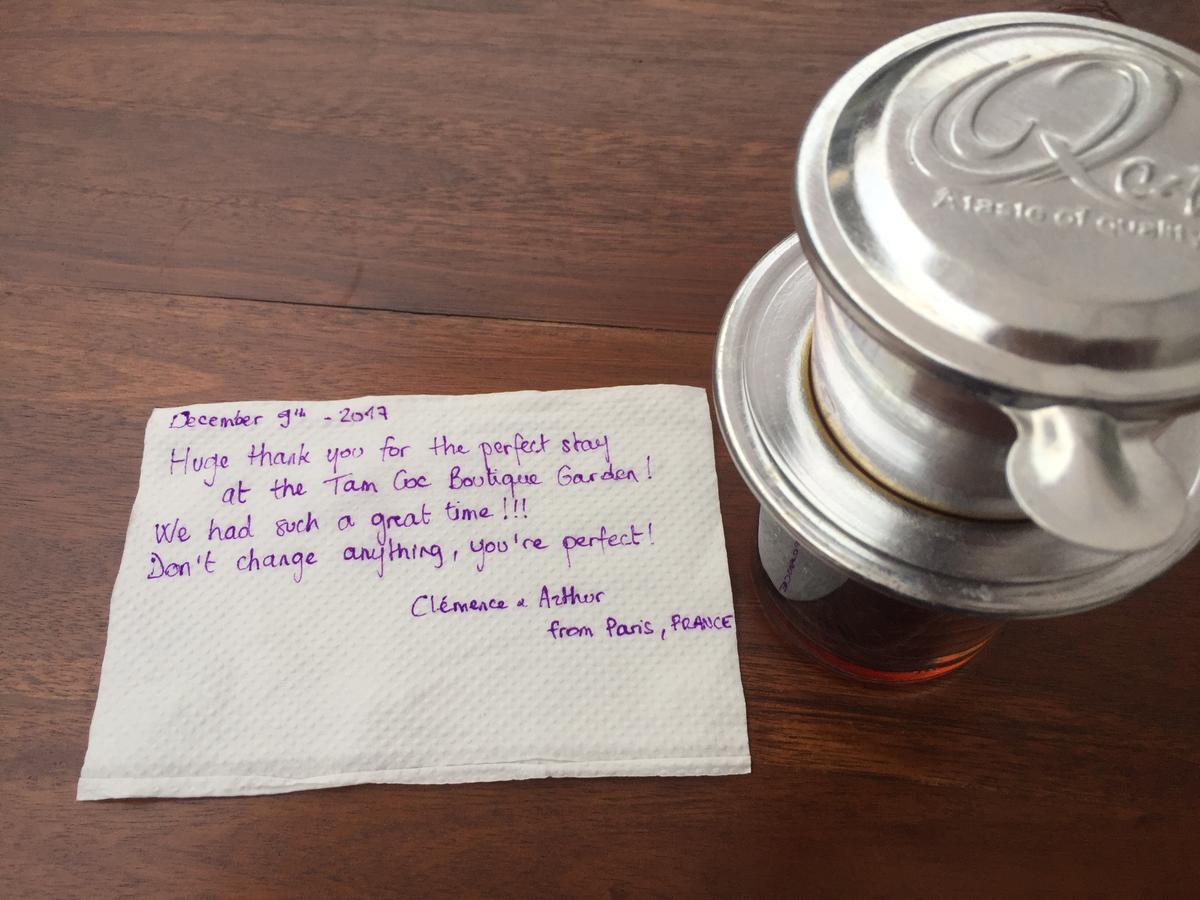 December 9th - 2017
Huge thank you for the perfect stay
at the Tam Coc Boutique Garden!
We had such a great time!!!
Don't change anything, you're perfect!
Clémence & Arthur
from Paris, FRANCE
A taste of quality